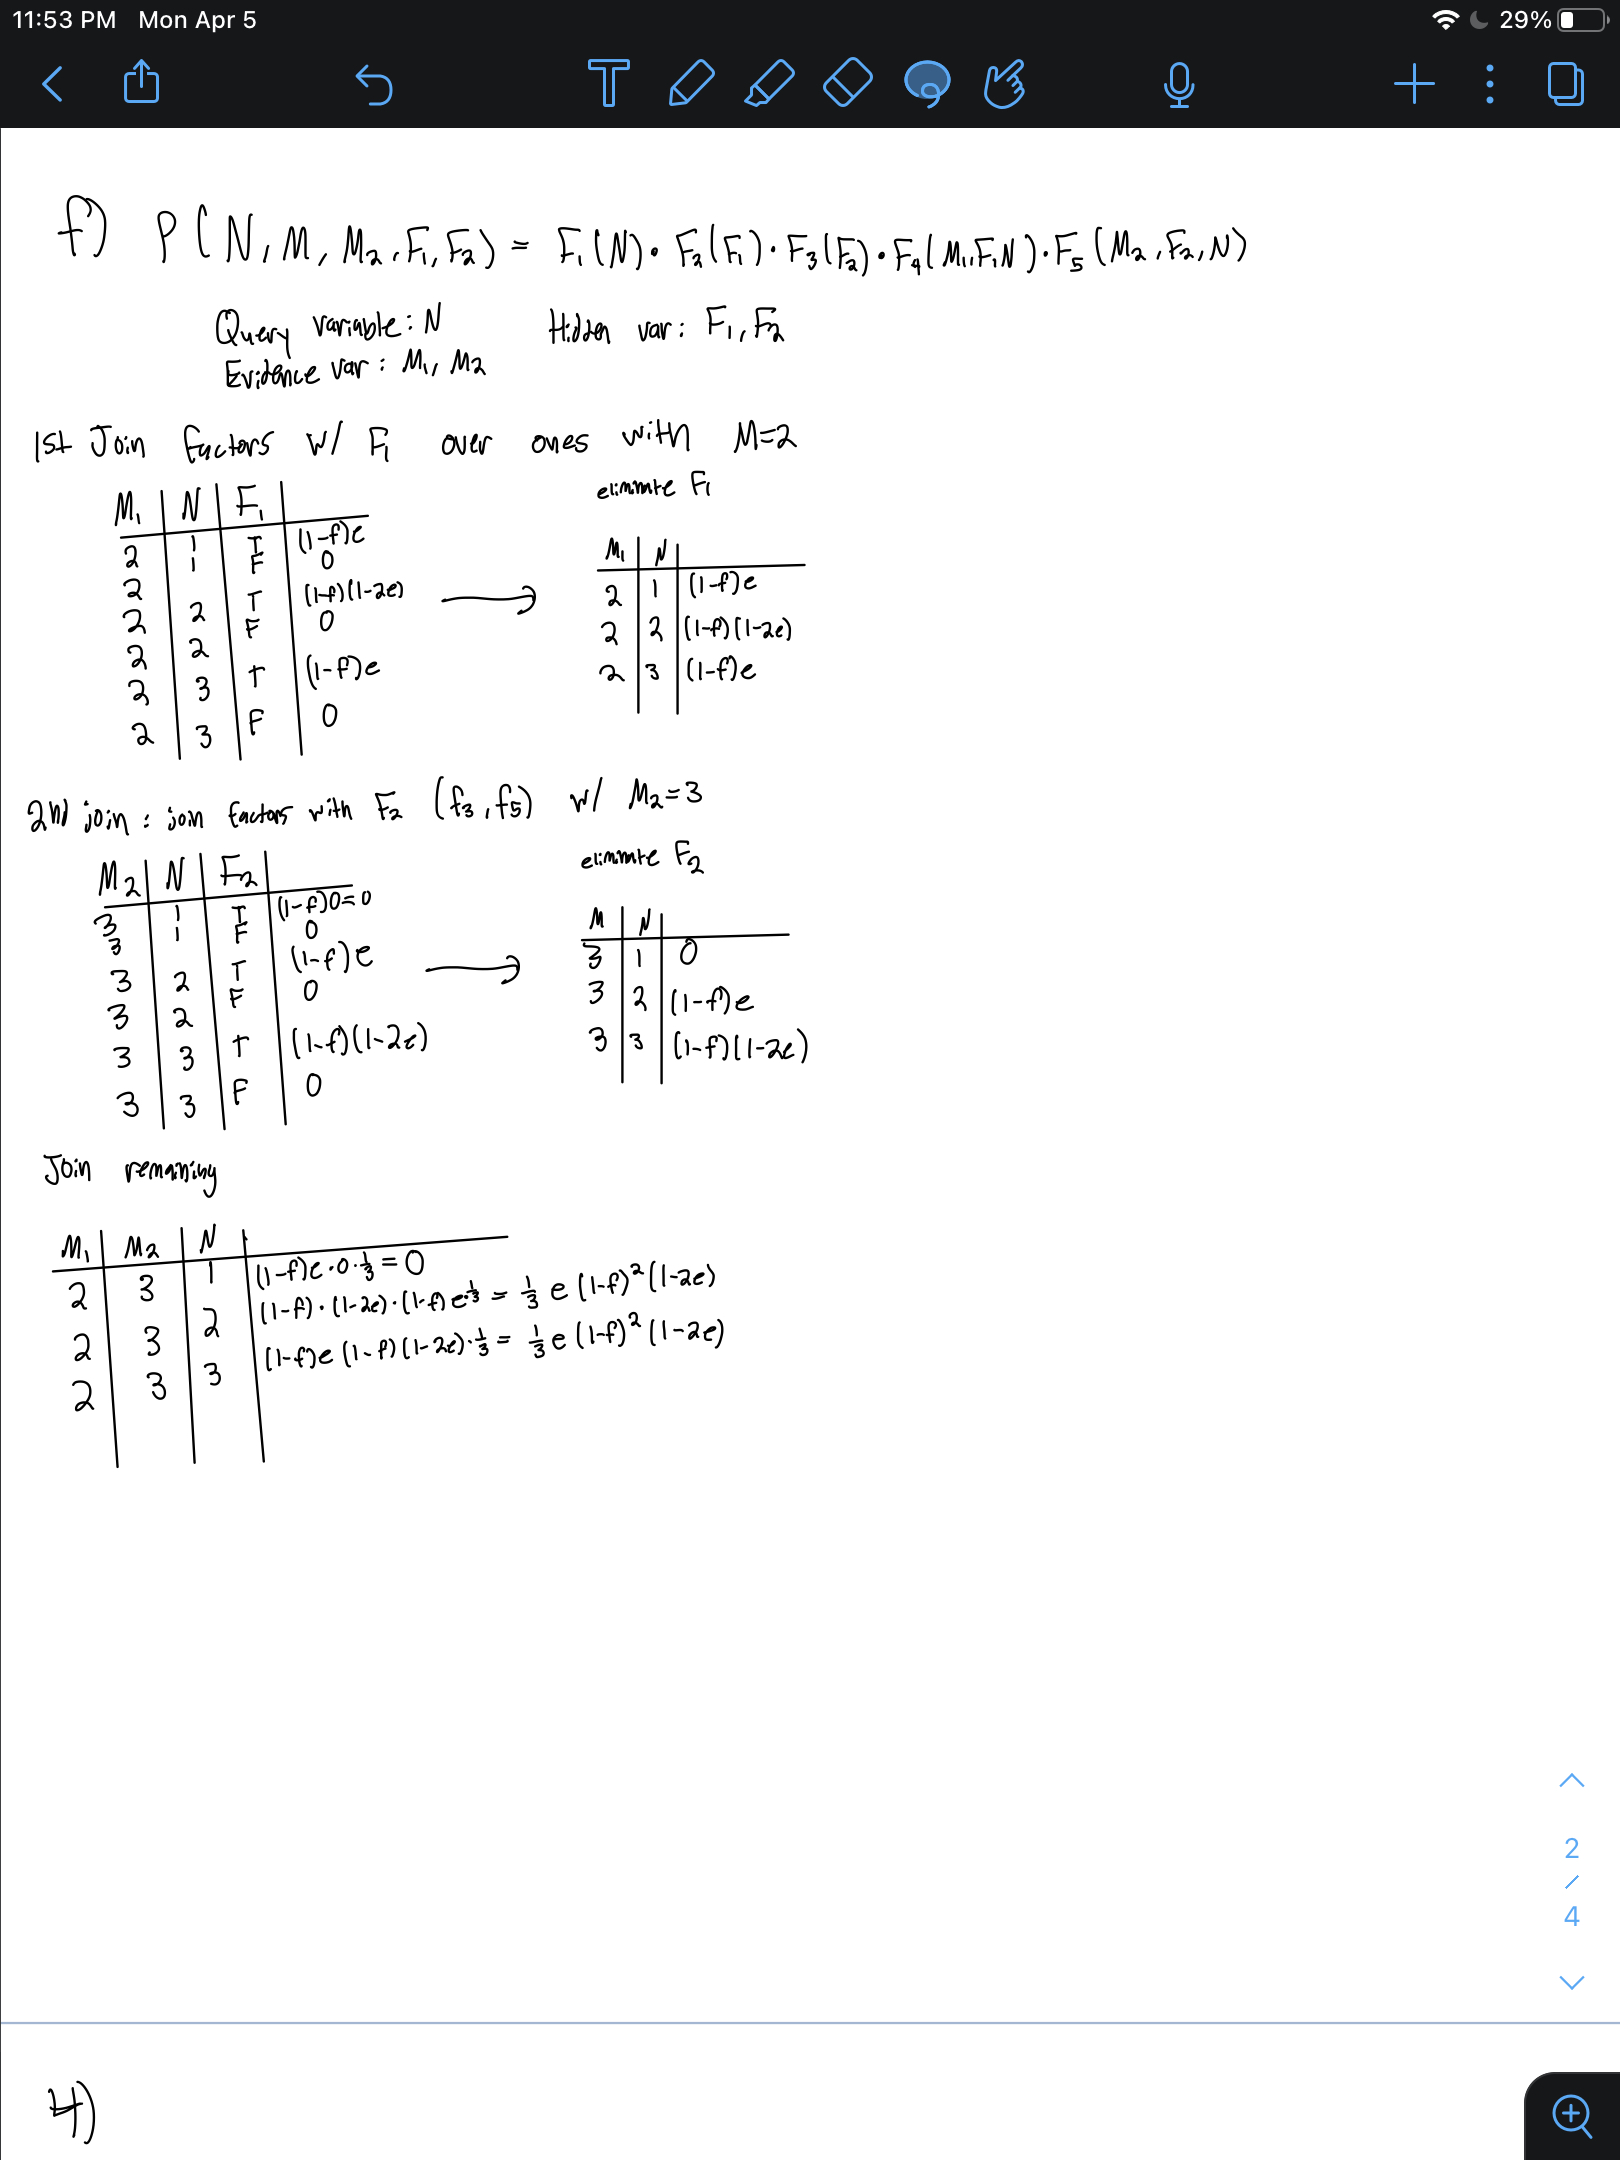 11:53 PM Mon Apr 5 29%
f) P(N, M, M₂, F₁, F₂) = F₁(N) · F₂(F₁) · F₃(F₂) · F₄(M₁,F₁N) · F₅(M₂,F₂,N)
Query variable: N Hidden var: F₁, F₂
Evidence var: M₁, M₂
1st Join factors w/ F₁ over ones with M=2
elimnte F₁
M₁ N F₁
2 1 T (1-f)e
2 1 F 0
2 2 T (1-f)(1-2e)
2 2 F 0
2 3 T (1-f)e
2 3 F 0
M₁ N
2 1 (1-f)e
2 2 (1-f)(1-2e)
2 3 (1-f)e
2nd join: join factors with F₂ (f₃, f₅) w/ M₂=3
elimnte F₂
M₂ N F₂
3 1 T (1-f)0=0
3 1 F 0
3 2 T (1-f)e
3 2 F 0
3 3 T (1-f)(1-2e)
3 3 F 0
M N
3 1 0
3 2 (1-f)e
3 3 (1-f)(1-2e)
Join remaning
M₁ M₂ N
2 3 1 (1-f)e·0·⅓ = 0
2 3 2 (1-f)·(1-2e)·(1-f)e·⅓ = ⅓ e (1-f)² (1-2e)
2 3 3 (1-f)e (1-f)(1-2e)·⅓ = ⅓ e (1-f)² (1-2e)
2
/
4
4)